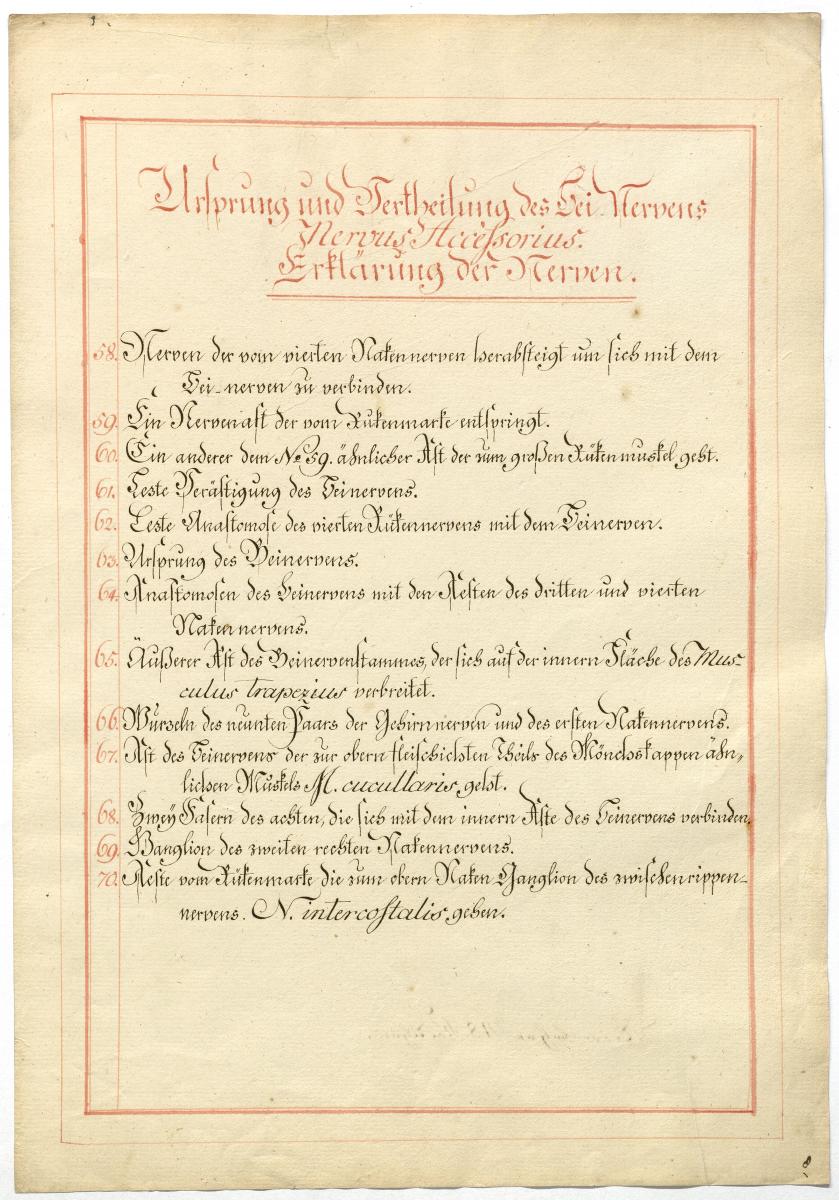 Ursprung und Vertheilung des Bei-Nervens
Nervus Accessorius.
Erklärung der Nerven.
58. Nerven der vom vierten Nakennerven herabsteigt um sich mit dem
Bei-nerven zu verbinden.
59. Ein Nervenast der vom Rukenmarke entspringt.
60. Ein anderer dem No 59. ähnlicher Ast der zum großen Rükenmuskel geht.
61. Leste Verästigung des Beinervens.
62. Leste Anastomose des vierten Rükennervens mit dem Beinerven.
63. Ursprung des Beinervens.
64. Anastomosen des Beinervens mit den Aesten des dritten und vierten
Nakennervens.
65. Äußerer Ast des Beinervenstammes, der sich auf der innern Fläche des Mus-
culus trapezius verbreitet.
66. Wurzeln des neunten Paars der Gehirnnerven und des ersten Nakennervens.
67. Ast des Beinervens der zur obern fleischichten Theils des Mönchskappen ähn-
lichen Muskels M. cucullaris, geht.
68. Zwey Fasern des achten, die sich mit dem innern Aste des Beinervens verbinden.
69. Ganglion des zweiten rechten Nakennervens.
70. Aeste vom Rükenmarke die zum obern Naken Ganglion des zwischenrippen-
nervens. N. intercostalis, gehen.
8